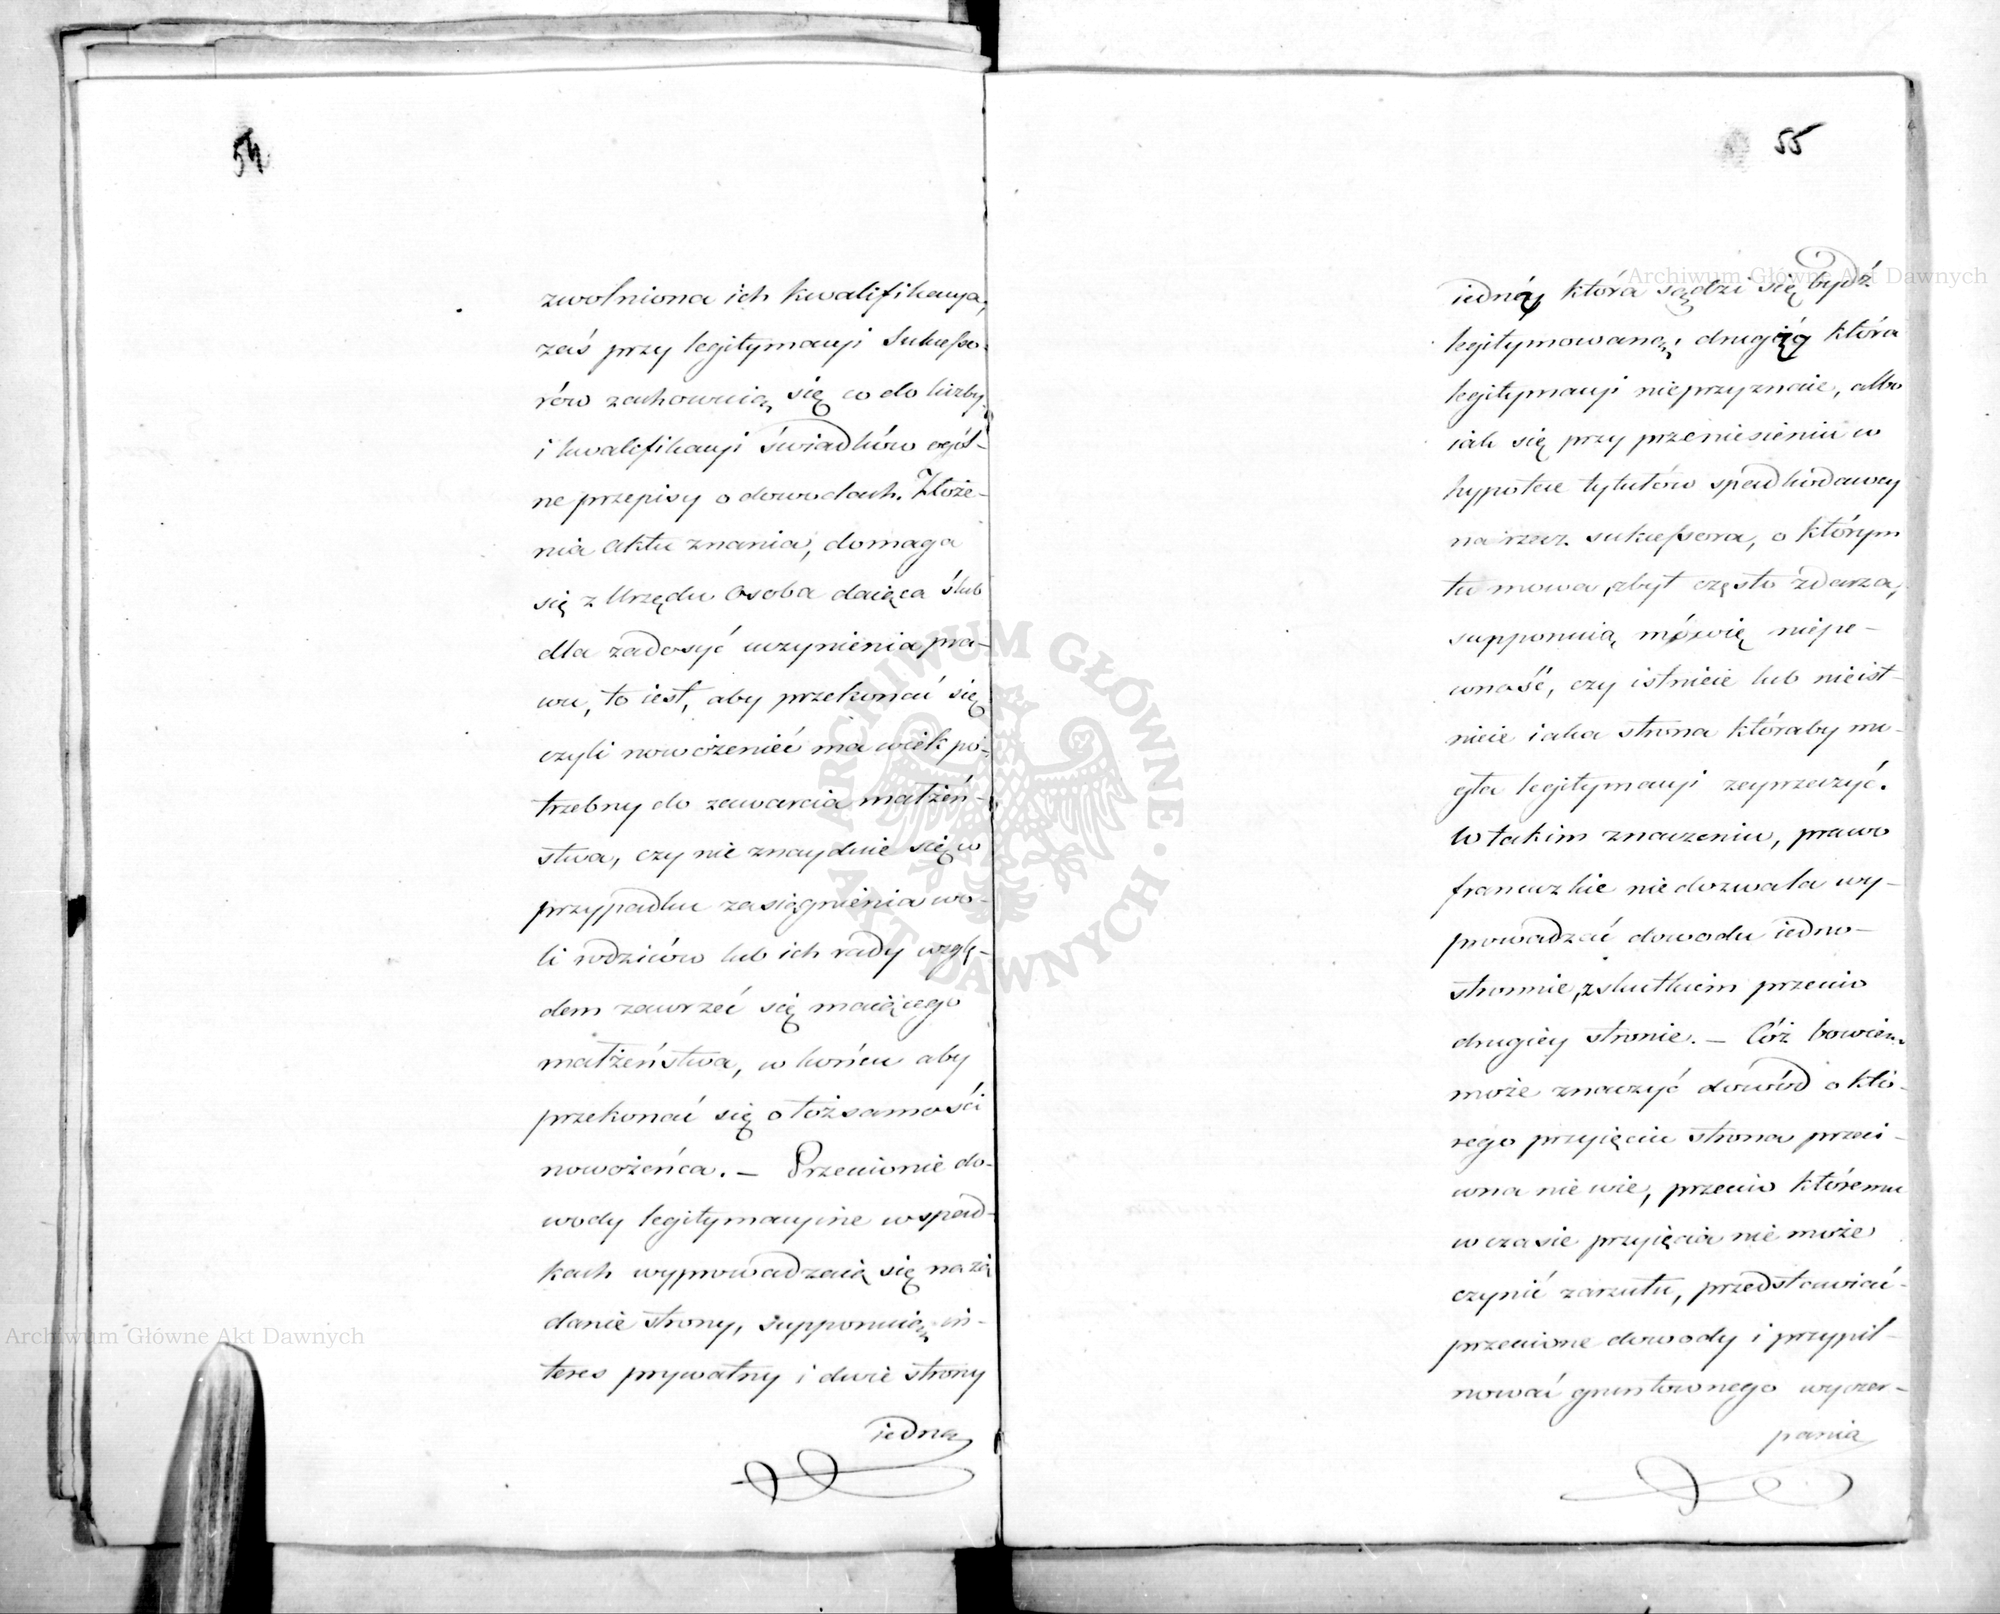 54
zwolniona ich kwalifikacya,
zaś przy legitymacyi Sukcesso-
rów zachowuią się co do liczby
i kwalifikacyi świadków ogól-
ne przepisy o dowodach. Złoże-
nia Aktu znania, domaga
się z Urzędu Osoba daiąca ślub
dla zadosyć uczynienia pra-
wu, to iest, aby przekonać się
czyli nowożeniec ma wiek po-
trzebny do zawarcia małżeń-
stwa, czy nie znayduie się w
przypadku zasiągnienia wo-
li rodziców lub ich rady wzglę-
dem zawrzeć się maiącego
małżeństwa, w końcu aby
przekonać się o tożsamości
nowożeńca. — Przeciwnie do-
wody legitymacyine w spad-
kach wyprowadzaią się na żą
danie strony, supponuią in-
teres prywatny i dwie strony
iedna
55
iedną która sądzi się bydź
legitymowaną, drugą która
legitymacyi nieprzyznaie, albo
iak się przy przeniesieniu w
hypotece tytułów spadkodawcy
na rzecz sukcessora, o którym
tu mowa, zbyt często zdarza,
supponuią mówię niepe-
wność, czy istnieie lub nieist-
nieie iaka strona któraby mo-
gła legitymacyi zaprzeczyć.
W takim znaczeniu, prawo
francuzkie niedozwala wy-
prowadzać dowodu iedno-
stronnie, z skutkiem przeciw
drugiey stronie. — Cóż bowiem
może znaczyć dowód o któ-
rego przyięciu strona przeci-
wna nie wie, przeciw któremu
w czasie przyięcia nie może
czynić zarzutu, przedstawiać
przeciwne dowody i przypil-
nować gruntownego wyczer-
pania
Archiwum Główne Akt Dawnych
Archiwum Główne Akt Dawnych
ARCHIWUM GŁÓWNE · AKT DAWNYCH ·